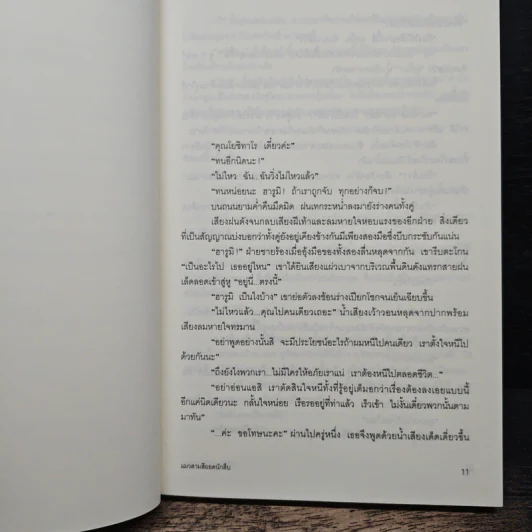 "คุณโยชิทาโร เดี๋ยวค่ะ"
"ทนอีกนิดนะ!"
"ไม่ไหว ฉัน...ฉันวิ่งไม่ไหวแล้ว"
"ทนหน่อยนะ ฮารุมิ! ถ้าเราถูกจับ ทุกอย่างก็จบ!"
บนถนนยามค่ำคืนมืดมิด ฝนเทกระหน่ำลงมายังร่างคนทั้งคู่
เสียงฝนดังจนกลบเสียงฝีเท้าและลมหายใจหอบแรงของอีกฝ่าย สิ่งเดียว
ที่เป็นสัญญาณบ่งบอกว่าทั้งคู่ยังอยู่เคียงข้างกันมีเพียงสองมือซึ่งบีบกระชับกันแน่น
"ฮารุมิ!" ฝ่ายชายร้องเมื่ออุ้งมือของทั้งสองลื่นหลุดจากกัน เขารีบตะโกน
"เป็นอะไรไป เธออยู่ไหน" เขาได้ยินเสียงแผ่วเบาจากบริเวณพื้นดินดังแทรกสายฝน
เล็ดลอดเข้าสู่หู "อยู่นี่...ตรงนี้"
"ฮารุมิ เป็นไงบ้าง" เขาย่อตัวลงช้อนร่างเปียกโชกจนเย็นเฉียบขึ้น
"ไม่ไหวแล้ว...คุณไปคนเดียวเถอะ" น้ำเสียงเว้าวอนหลุดจากปากพร้อม
เสียงลมหายใจทรมาน
"อย่าพูดอย่างนั้นสิ จะมีประโยชน์อะไรถ้าผมหนีไปคนเดียว เราตั้งใจหนีไป
ด้วยกันนะ"
"ถึงยังไงพวกเรา...ไม่มีใครให้อภัยเราแน่ เราต้องหนีไปตลอดชีวิต..."
"อย่าอ่อนแอสิ เราตัดสินใจหนีทั้งที่รู้อยู่เต็มอกว่าเรื่องต้องลงเอยแบบนี้
อีกแค่นิดเดียวนะ กลั้นใจหน่อย เรือรออยู่ที่ท่าแล้ว เร็วเข้า ไม่งั้นเดี๋ยวพวกนั้นตาม
มาทัน"
"...ค่ะ ขอโทษนะคะ" ผ่านไปครู่หนึ่ง เธอจึงพูดด้วยน้ำเสียงเด็ดเดี่ยวขึ้น
แมวสามสียอดนักสืบ
11